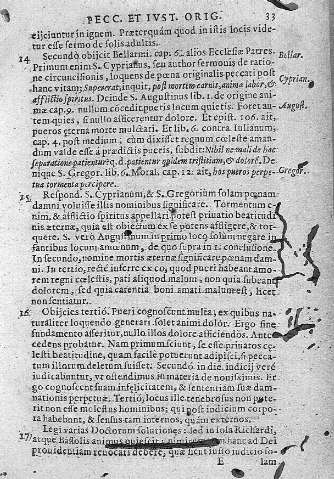 PECC. ET IVST. ORIG. 33
ijciuntur in ignem. Præterquam quod in istis locis vide-
tur esse sermo de solis adultis.
14 Secundò obijcit Bellarmi. cap. 6. alios Ecclesiæ Patres. Bellar.
Primum enim S. Cyprianus, seu author sermonis de ratio-
ne circuncisionis, loquens de pœna originalis peccati post
hanc vitam; Supererat, inquit, post mortem carnis, animæ labor, & Cyprian.
afflictio spiritus. Deinde S. Augustinus lib. 1. de origine ani-
mæ cap. 9. nullum cōcedit pueris locum quietis. Foret an- August.
tem quies, si nullo afficerentur dolore. Et epist. 106. ait,
pueros æterna morte mulctari. Et lib. 6. contra Iulianum,
cap. 4. post medium, cum dixisset regnum cœleste aman-
dum valde esse à practis pueris, subdit: Nihil ne mali de hac
separatione patientur
nique S. Gregor. lib. 6. Moral. cap. 12. ait, hos pueros perpe- Gregor.
tua tormenta percipere.
25 Respond. S. Cyprianum, & S. Gregorium solam pœnam
damni voluisse illis nominibus significare. Tormentum e-
nim, & afflictio spiritus appellari potest priuatio beatitudi-
nis æternæ, quia est obiectum ex se potens affligere, & tor-
quere. S. vero Augustinum in primo loco solum negare in
fantibus locum amœnum, de quo supra in 1. conclusione.
In secundo, nomine mortis æternæ significare pœnam dam-
ni. In tertio, rectè inferre ex eo, quod pueri habeant amo-
rem regni cœlestis, pati aliquod malum, non quia subeant
dolorem, sed quia carentia boni amati malum est, licet
non sentiatur.
16 Obijcies tertiò. Pueri cognoscunt mala, ex quibus na-
turaliter loquendo generari solet animi dolor. Ergo sine
fundamento asseritur, nullo illos dolore afficiendos. Ante-
cedens probatur. Nam primum sciunt, se esse priuatos cœ-
lesti beatitudine, quam facile potuerunt adipisci, si pecca-
tum illorum deletum fuisset. Secundo in die iudicij verè
iudicabuntur, vt ostendimus in materia de nouissimis. Er-
go cognoscent suam infelicitatem, & sententiam suæ dam-
nationis perpetuæ. Tertiò, locus ille tenebrosus non pote-
rit non esse molestus hominibus; qui post iudicium corpo-
ra habebunt, & sensus tam internos, quàm externos.
17 Legi varias Doctorum solutiones: sed in sola Richardi,
atque Bassolis animus quiescit: ad Dei
prouidentiam reuocari debere, quæ sicut iusto iudicio so-
E lam